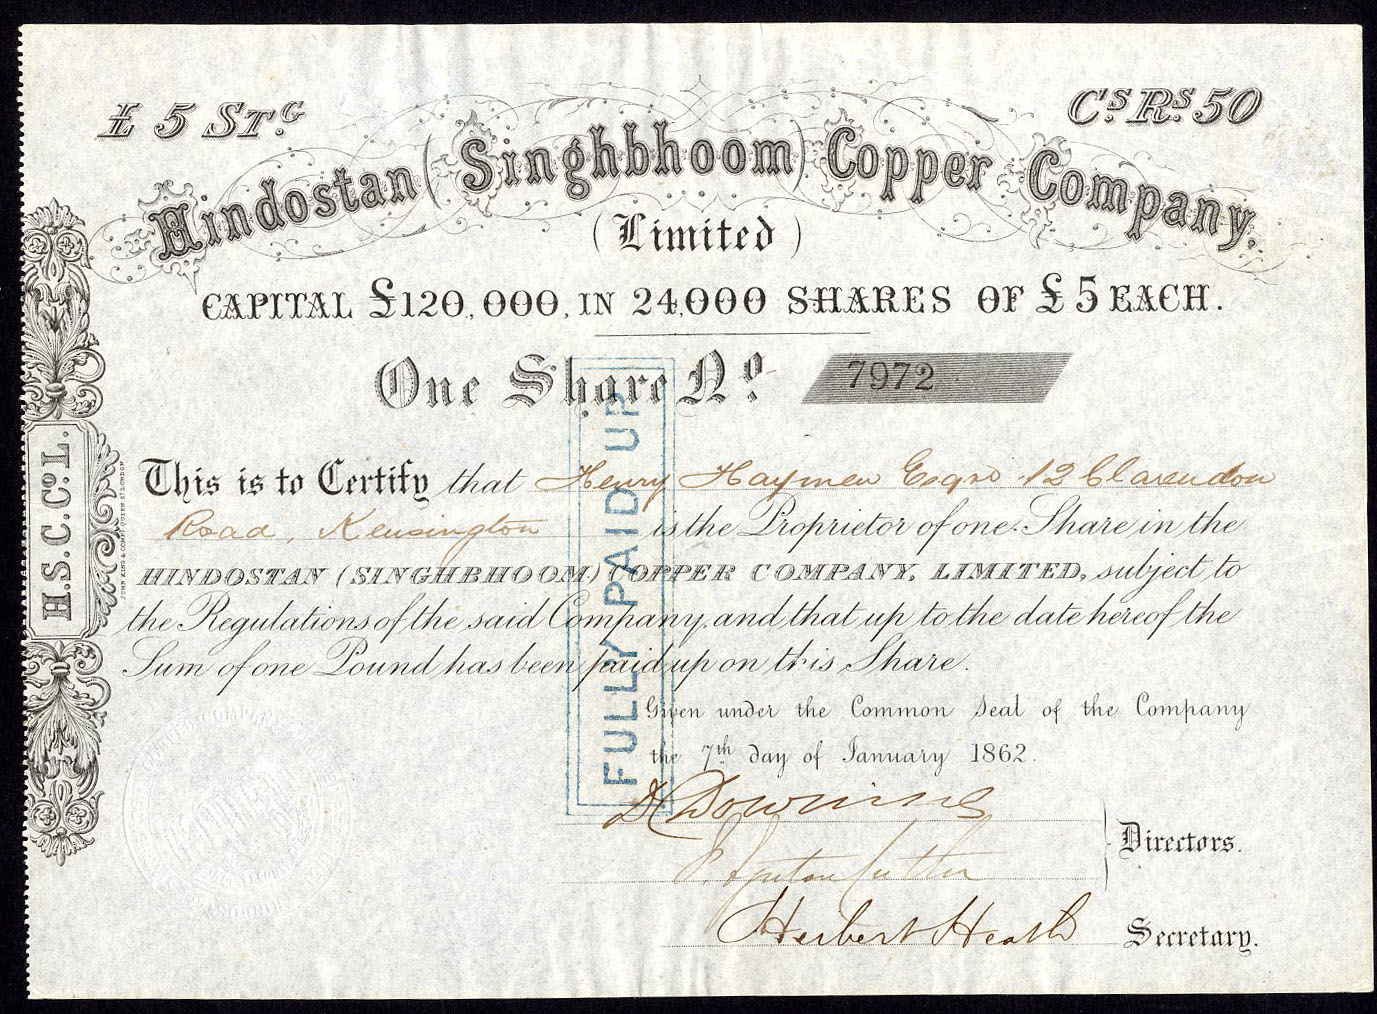 £ 5 STG. Cs Rs 50
Hindostan (Singhbhoom) Copper Company.
(Limited)
CAPITAL £120,000, IN 24,000 SHARES OF £5 EACH.
One Share No. 7972
This is to Certify that Henry Haymen Esqre 12 Clarendon
Road, Kensington is the Proprietor of one Share in the
HINDOSTAN (SINGHBHOOM) COPPER COMPANY, LIMITED, subject to
the Regulations of the said Company, and that up to the date hereof the
Sum of one Pound has been paid up on this Share.
Given under the Common Seal of the Company
the 7th day of January 1862.
Directors.
Herbert Heath Secretary.
FULLY PAID UP
H.S.C.Co L.